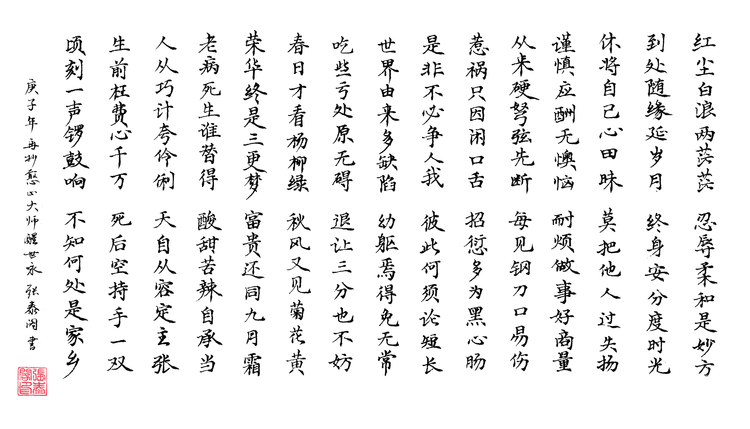 红尘白浪两茫茫 忍辱柔和是妙方
到处随缘延岁月 终身安分度时光
休将自己心田昧 莫把他人过失扬
谨慎应酬无懊恼 耐烦做事好商量
从来硬弩弦先断 每见钢刀口易伤
惹祸只因闲口舌 招愆多为黑心肠
是非不必争人我 彼此何须论短长
世界由来多缺陷 幼躯焉得免无常
吃些亏处原无碍 退让三分也不妨
春日才看杨柳绿 秋风又见菊花黄
荣华终是三更梦 富贵还同九月霜
老病死生谁替得 酸甜苦辣自承当
人从巧计夸伶俐 天自从容定主张
生前枉费心千万 死后空持手一双
顷刻一声锣鼓响 不知何处是家乡
庚子年 抄憨山大师醒世永 张泰 书